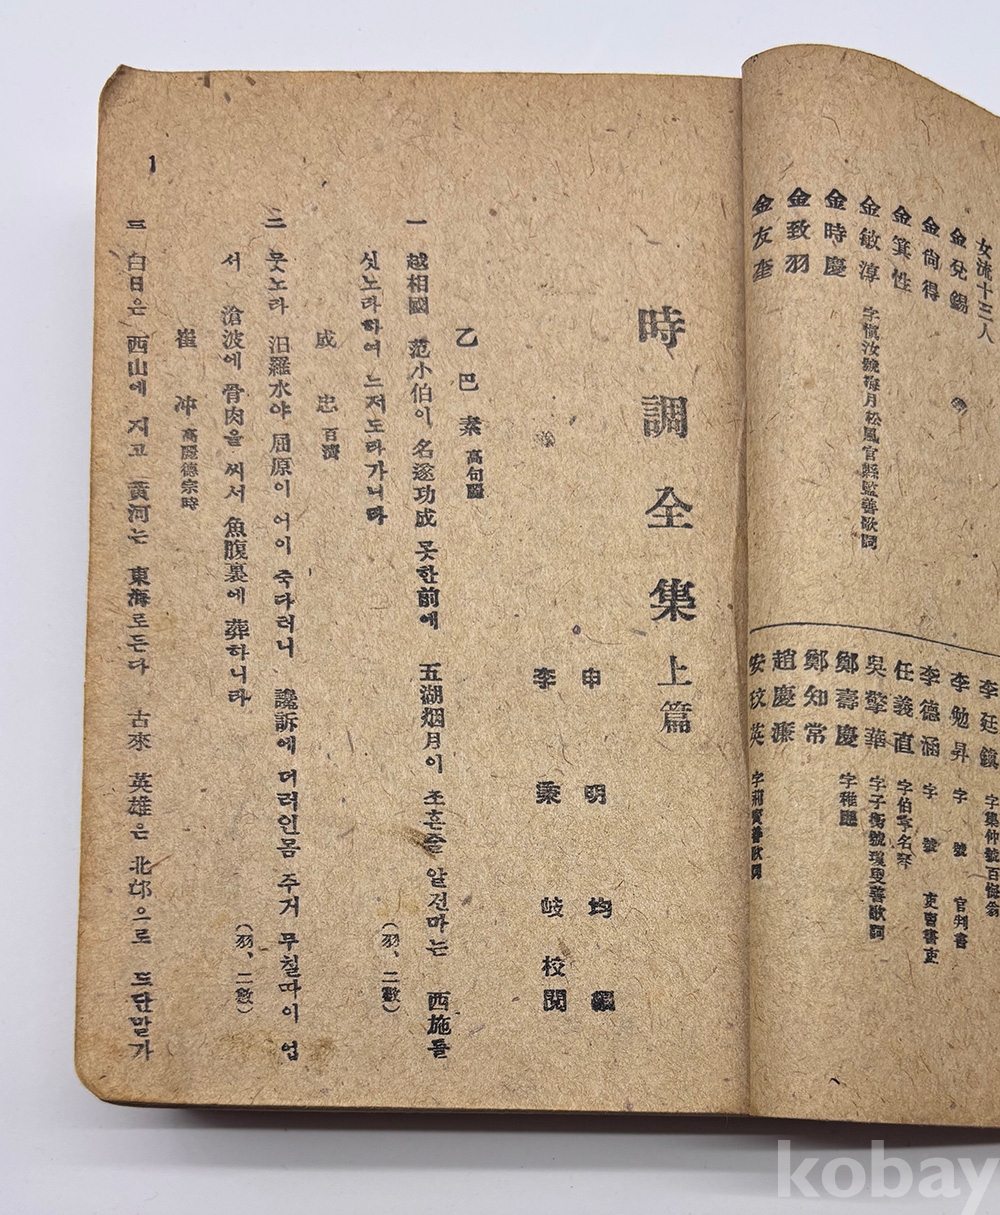 女流十三人
金兌錫
金尙得
金箕性
金敏淳 字愼汝號梅月松風官縣監善歌詞
金時慶
金致羽
金友奎
李廷鎭 字集仲號百悔翁
李勉昇 字 號 官判書
李德涵 字 號
任義直 字伯亨名琴
吳擎華 字子衡號瓊叟善歌詞
鄭壽慶 字稚應
鄭知常
趙慶濂
安玟英 字荊寶善歌詞
時調全集 上篇
申明均 編
李秉岐 校閱
乙巴素 高句麗
一 越相國 范小伯이 名遂功成 못한前에 五湖烟月이 조흔줄 알건마는 西施를
싯노라하여 느저도라가니라 (羽、二數)
成忠 百濟
二 뭇노라 汨羅水야 屈原이 어이 죽다러니 讒訴에 더러인몸 주거 무칠따이 업
서 滄波에 骨肉을 씨서 魚腹裏에 葬하니라 (羽、二數)
崔冲 高麗德宗時
三 白日은 西山에 지고 黃河는 東海로든다 古來 英雄은 北邙으로 드단말가
1
kobay